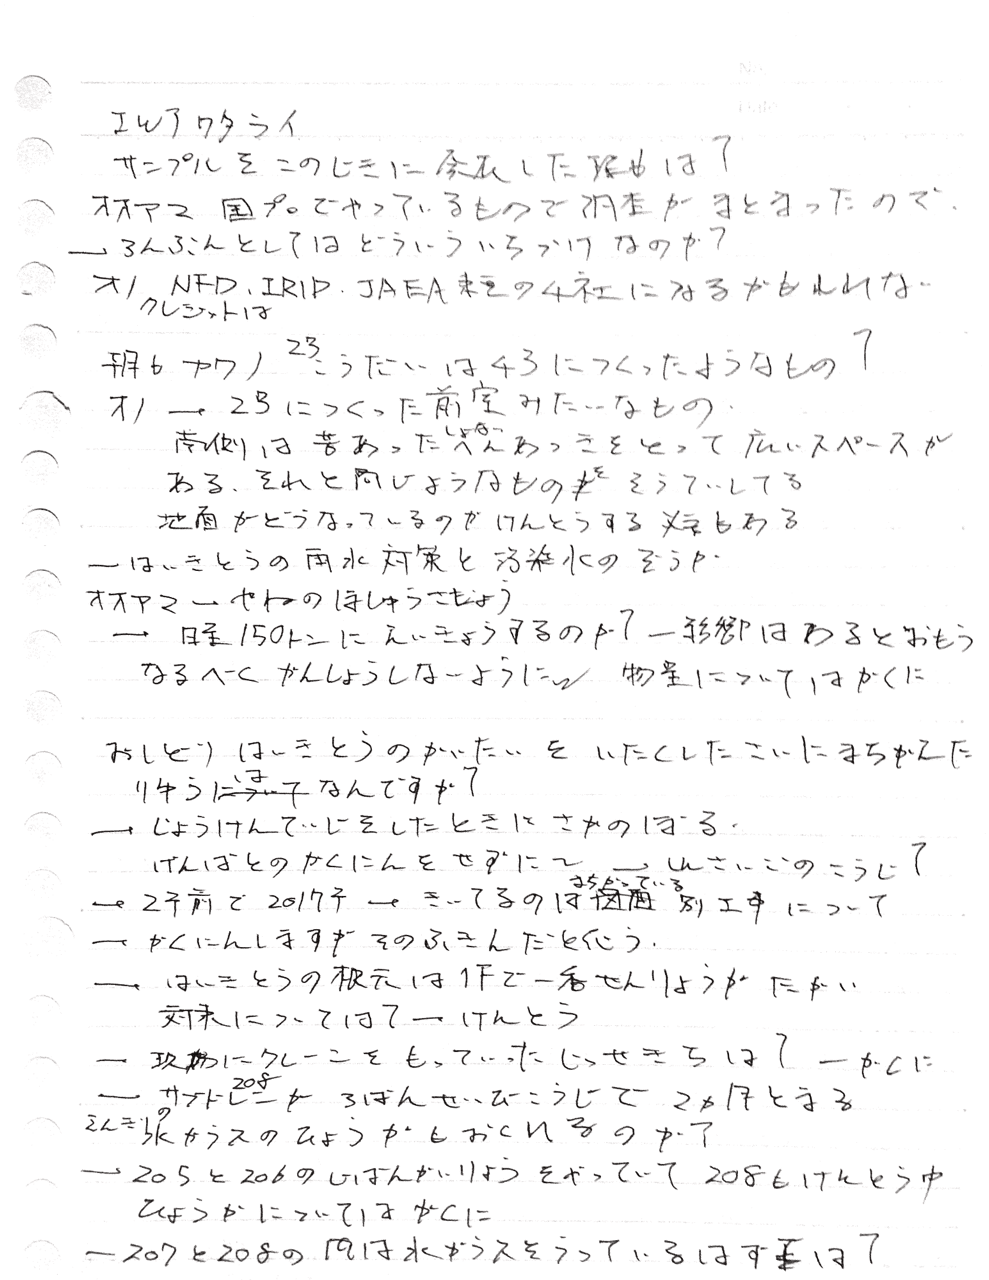 IWJ ワタライ
サンプルをこのじきに発表した理由は?
オオヤマ 国プロでやっているもので調査がまとまったので、
→ ろんぶんとしてはどういういちづけなのか?
オノ NFD、IRID、JAEA 東電の4社になるかもしれない
クレジットは
カワノ 2号こうたいは4号につくったようなもの?
オノ → 2号につくった前室みたいなもの.
南側は昔あったへんあつきをとって広いスペースが
ある、それと同じようなものをそうていしてる
地面がどうなっているのかけんとうする 必要もある
→ はいきとうの雨水対策と汚染水のぞうか
オオヤマ → やねのほしゅうさぎょう
→ 日量150トンにえいきょうするのか? → 影響はあるとおもう
なるべくかんしょうしないように 物量についてはかくに
おしどり はいきとうのかいたいをいたくしたさいにまちがえた
りゆうはなんですか?
→ じょうけんていじをしたときにさかのぼる.
げんばとのかくにんをせずに〜 → しんさいごのこうじ?
→ 2年前で2017年 → きいてるのはまちがっている図面 別工事について
→ かくにんしますが そのふきんだと思う.
→ はいきとうの根元は1Fで一番せんりょうがたかい
対策については? → けんとう
→ 現場にクレーンをもっていったじっせきちは? → かくに
→ サブドレン208がろばんせいびこうじで2ヶ月とまる
えんぎりの氷がラスのひょうかもおくれるのか?
→ 205と206のじばんかいりょうをやっていて 208もけんとう中
ひょうかについてはかくに
→ 207と208の間は水がラスをうっているはず は?